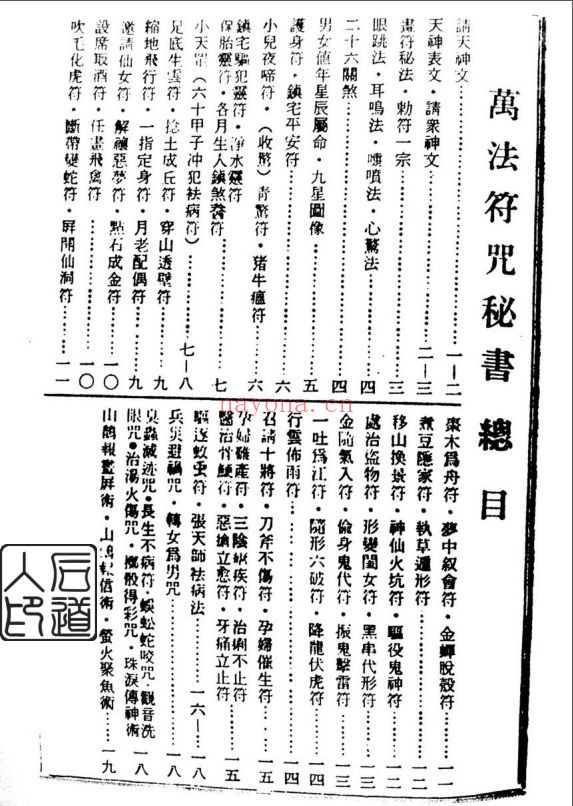 萬法符咒秘書總目
請天神文……一—二
天神表文·請衆神文……二—三
畫符秘法·勅符一宗……三
眼跳法·耳鳴法·嚏噴法·心驚法……四
二十六關煞……四
男女値年星辰屬命·九星圖像……五
護身符·鎭宅平安符……六
小兒夜啼符·(收驚)靑驚符·猪牛瘟符……六
鎭宅驅犯靈符·净水靈符
保胎靈符·各月生人鎭煞符……七
小天罡(六十甲子冲犯祛病符)……七—八
足底生雲符·捻土成丘符·穿山透壁符……九
縮地飛行符·一指定身符·月老配偶符……九
邀請仙女符·解禳惡夢符·點石成金符……一〇
設席取酒符·任畫飛禽符……一〇
吹毛化虎符·斷帶變蛇符·屏開仙洞符……一一
棗木爲舟符·夢中叙會符·金蟬脫殼符……一一
煮豆隱家符·執草遁形符……一二
移山換景符·神仙火坑符·驅役鬼神符……一二
處治盜物符·形變閨女符·黑串代形符……一三
金隨氣入符·偷身鬼代符·振鬼擊雷符……一三
一吐爲江符·隨形六破符·降龍伏虎符……一四
行雲佈雨符……一四
召請十將符·刀斧不傷符·孕婦催生符……一五
孕婦難產符·三陰瘧疾符·治痢不止符
醫治骨鯁符·惡瘡立愈符·牙痛立止符……一五
驅逐蚊虫符·張天師祛病法……一六—一八
兵災避禍咒·轉女爲男咒……一八
臭蟲滅迹咒·長生不病符·蜈蚣蛇咬咒·觀音洗
眼咒·治湯火傷咒·擲骰得彩咒·珠淚傳神術……一八
山鵲報驚屏術·山鵲信術·螢火聚魚術……一九
nayona.cn
后道人印